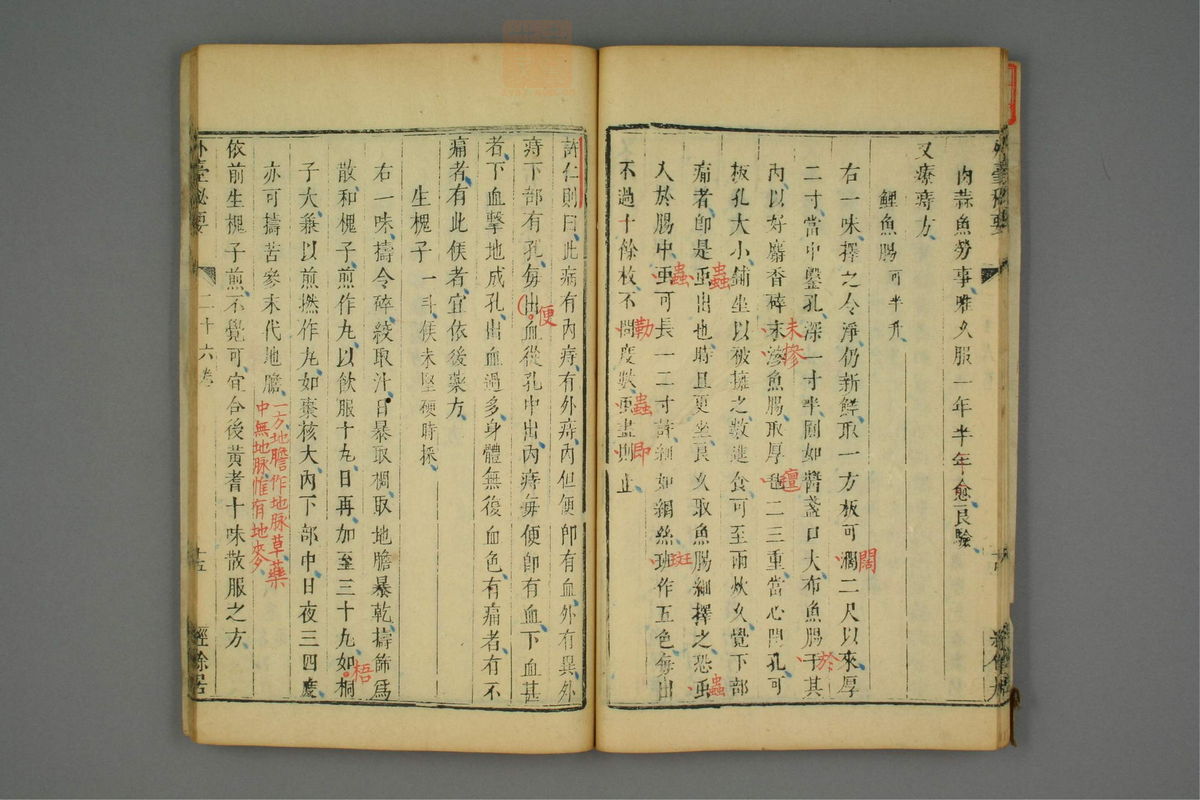 外臺秘要
肉蒜魚勞事雖久服一年半年愈良驗
又療痔方
鯉魚腸可半升
右一味擇之令淨仍新鮮取一方板可濶二尺以來厚
闊
二寸當中鑿孔深一寸半圓如醬盞口大布魚腸于其
於
內以好麝香碎末滲魚腸取厚氊二三重當心開孔可
末摻
氊
板孔大小鋪坐以被擁之數進食可至兩炊久覺下部
痛者卽是䖝出也時且更坐良久取魚腸細擇之恐䖝
蟲
蟲
入於腸中䖝可長一二寸許細如網絲班作五色每出
蟲
斑
不過十餘枚不問度數䖝盡則止
勒
蟲
卽
許仁則曰此病有內痔有外痔內但便卽有血外有異外
痔下部有孔每出血從孔中出內痔每便卽有血下血甚
便
者下血擊地成孔出血過多身體無復血色有痛者有不
痛者有此候者宜依後藥方
生槐子一斗候未堅硬時採
右一味擣令碎絞取汁日暴取稠取地膽暴乾擣篩爲
散和槐子煎作丸以飲服十丸日再加至三十丸如桐
梧
子大兼以煎撚作丸如棗核大內下部中日夜三四度
亦可擣苦參末代地膽
一方地膽作地脉草藥
中無地脉惟有地麥
依前生槐子煎不覺可宜合後黃耆十味散服之方
外臺秘要
二十六卷
十五
經餘居